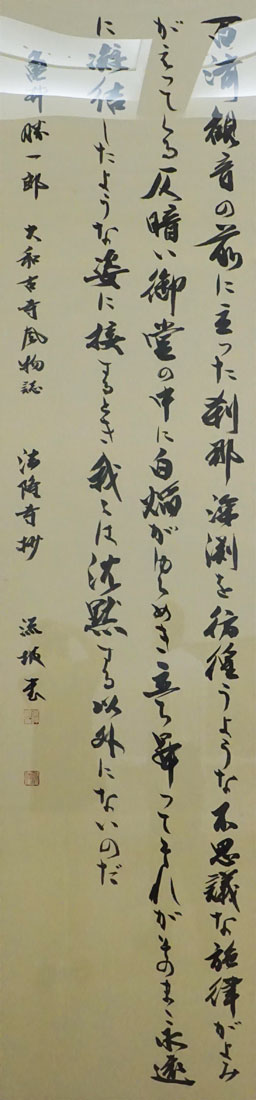 百済観音の前に立った刹那深淵を彷徨うような不思議な旋律がよみ
がえってくる仄暗い御堂の中に白焔がゆらめき立ち昇ってそれがそのまゝ永遠
に凝結したような姿に接するとき我々は沈黙する以外にないのだ
亀井勝一郎 大和古寺風物誌 法隆寺抄 流坡書